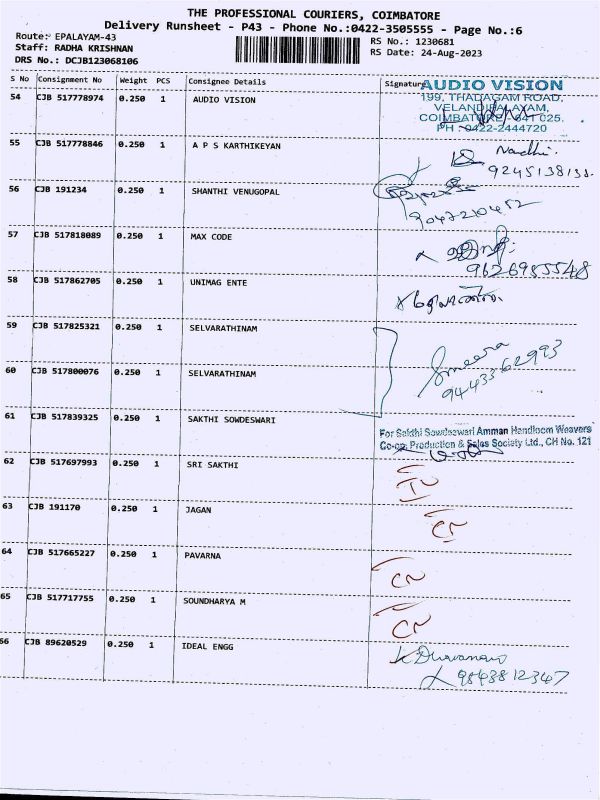 THE PROFESSIONAL COURIERS, COIMBATORE
Delivery Runsheet - P43 - Phone No.:0422-3505555 - Page No.:6
Route: EPALAYAM-43
RS No.: 1230681
Staff: RADHA KRISHNAN
RS Date: 24-Aug-2023
DRS No.: DCJB123068106
S No Consignment No Weight PCS Consignee Details Signature
54 CJB 517778974 0.250 1 AUDIO VISION
AUDIO VISION
199, THADAGAM ROAD,
VELANDIPALAYAM,
COIMBATORE - 641 025.
PH : 0422-2444720
55 CJB 517778846 0.250 1 A P S KARTHIKEYAN
Nandhi.
56 CJB 191234 0.250 1 SHANTHI VENUGOPAL
9047210452
57 CJB 517818089 0.250 1 MAX CODE
9626985548
58 CJB 517862705 0.250 1 UNIMAG ENTE
59 CJB 517825321 0.250 1 SELVARATHINAM
Smeera
9443362993
60 CJB 517800076 0.250 1 SELVARATHINAM
61 CJB 517839325 0.250 1 SAKTHI SOWDESWARI
For Sakthi Sowdeswari Amman Handloom Weavers
Co-op. Production & Sales Society Ltd., CH No. 121
62 CJB 517697993 0.250 1 SRI SAKTHI
63 CJB 191170 0.250 1 JAGAN
CN
64 CJB 517665227 0.250 1 PAVARNA
CN
65 CJB 517717755 0.250 1 SOUNDHARYA M
CN
66 CJB 89620529 0.250 1 IDEAL ENGG
9843812347